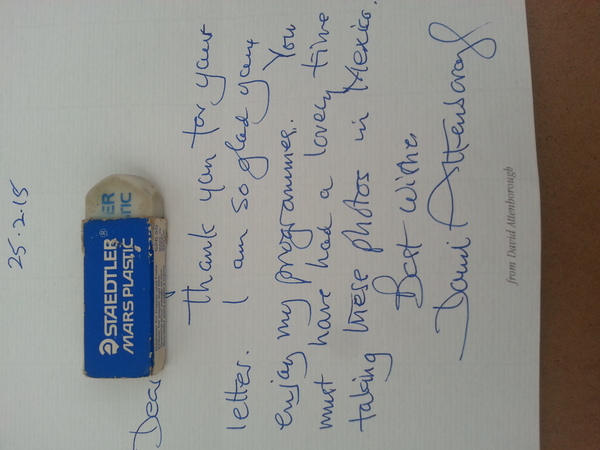 25.2.15
Dear
STAEDTLER®
MARS PLASTIC
ER
TIC
Thank you for your
letter. I am so glad you
enjoy my programmes. You
must have had a lovely time
taking these photos in Mexico.
Best wishes
David Attenborough
from David Attenborough